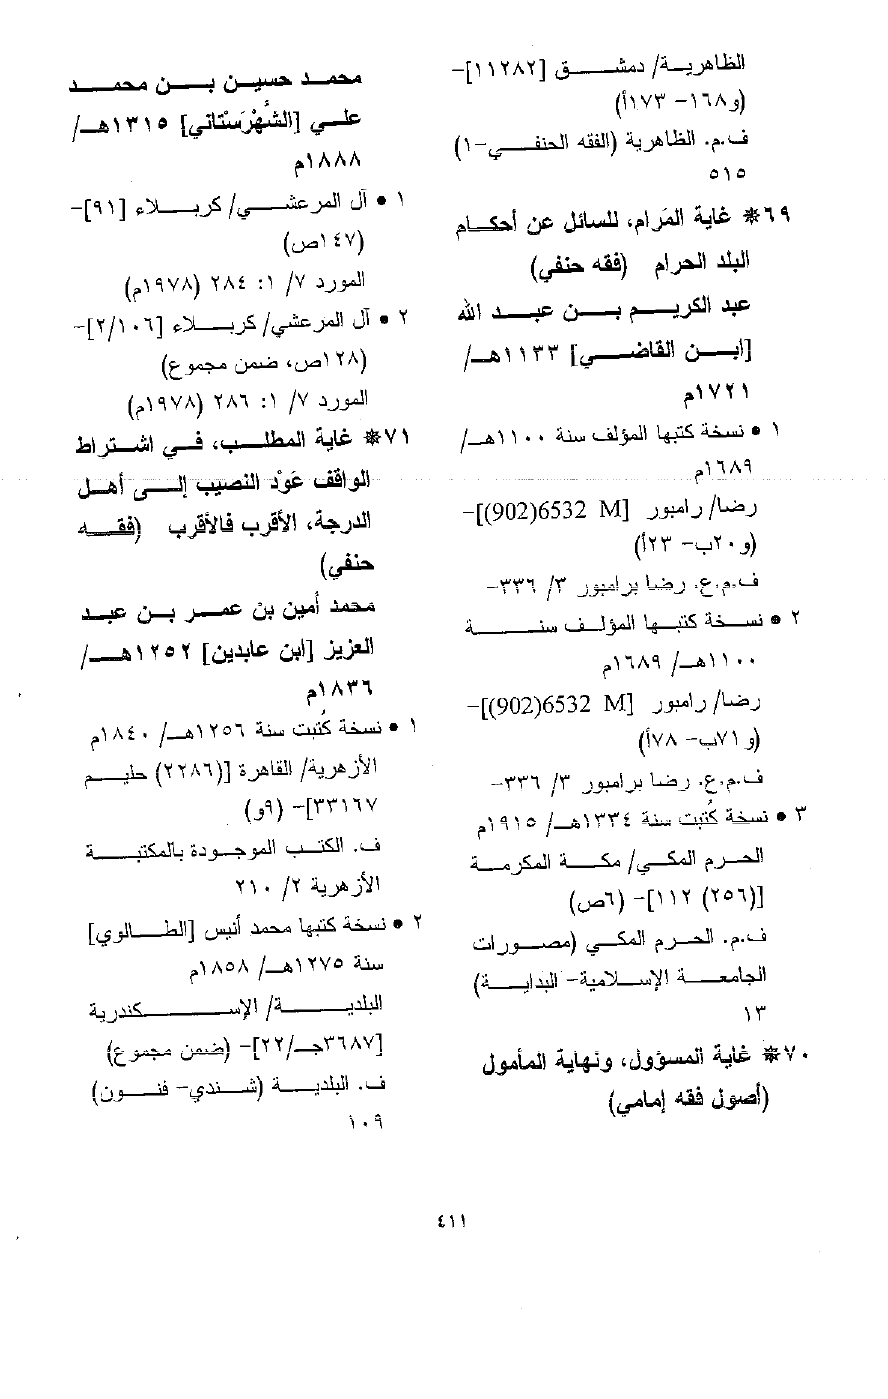 الظاهرية/ دمشق [١١٢٨٢]–
(و١٦٨– ١٧٣أ)
ف.م. الظاهرية (الفقه الحنفي–١)
٥١٥
٦٩* غاية المَرام، للسائل عن أحكام
البلد الحرام (فقه حنفي)
عبد الكريم بن عبد الله
[ابن القاضي] ١١٣٣هـ/
١٧٢١م
١ • نسخة كتبها المؤلف سنة ١١٠٠هـ/
١٦٨٩م
رضا/ رامبور [M 6532(902)]–
(و٢٠ب– ٢٣أ)
ف.م.ع. رضا برامبور ٣/ ٣٣٦–
٢ • نسخة كتبها المؤلف سنة
١١٠٠هـ/ ١٦٨٩م
رضا/ رامبور [M 6532(902)]–
(و٧١ب– ٧٨أ)
ف.م.ع. رضا برامبور ٣/ ٣٣٦–
٣ • نسخة كُتبت سنة ١٣٣٤هـ/ ١٩١٥م
الحرم المكي/ مكة المكرمة
[(٢٥٦) ١١٢]– (٦ص)
ف.م. الحرم المكي (مصورات
الجامعة الإسلامية– البداية)
١٣
٧٠* غاية المسؤول، ونهاية المأمول
(أصول فقه إمامي)
محمد حسين بن محمد
علي [الشُهْرَسْتاني] ١٣١٥هـ/
١٨٨٨م
١ • آل المرعشي/ كربلاء [٩١]–
(١٤٧ص)
المورد ٧/ ١: ٢٨٤ (١٩٧٨م)
٢ • آل المرعشي/ كربلاء [٢/١٠٦]–
(١٢٨ص، ضمن مجموع)
المورد ٧/ ١: ٢٨٦ (١٩٧٨م)
٧١* غاية المطلب، في اشتراط
الواقف عَوْد النصيب إلى أهل
الدرجة، الأقرب فالأقرب (فقه
حنفي)
محمد أمين بن عمر بن عبد
العزيز [ابن عابدين] ١٢٥٢هـ/
١٨٣٦م
١ • نسخة كُتبت سنة ١٢٥٦هـ/ ١٨٤٠م
الأزهرية/ القاهرة [(٢٢٨٦) حليم
٣٣١٦٧]– (٩و)
ف. الكتب الموجودة بالمكتبة
الأزهرية ٢/ ٢١٠
٢ • نسخة كتبها محمد أنيس [الطالوي]
سنة ١٢٧٥هـ/ ١٨٥٨م
البلدية/ الإسكندرية
[٣٦٨٧جـ/٢٢]– (ضمن مجموع)
ف. البلدية (شندي– فنون)
١٠٩
٤١١